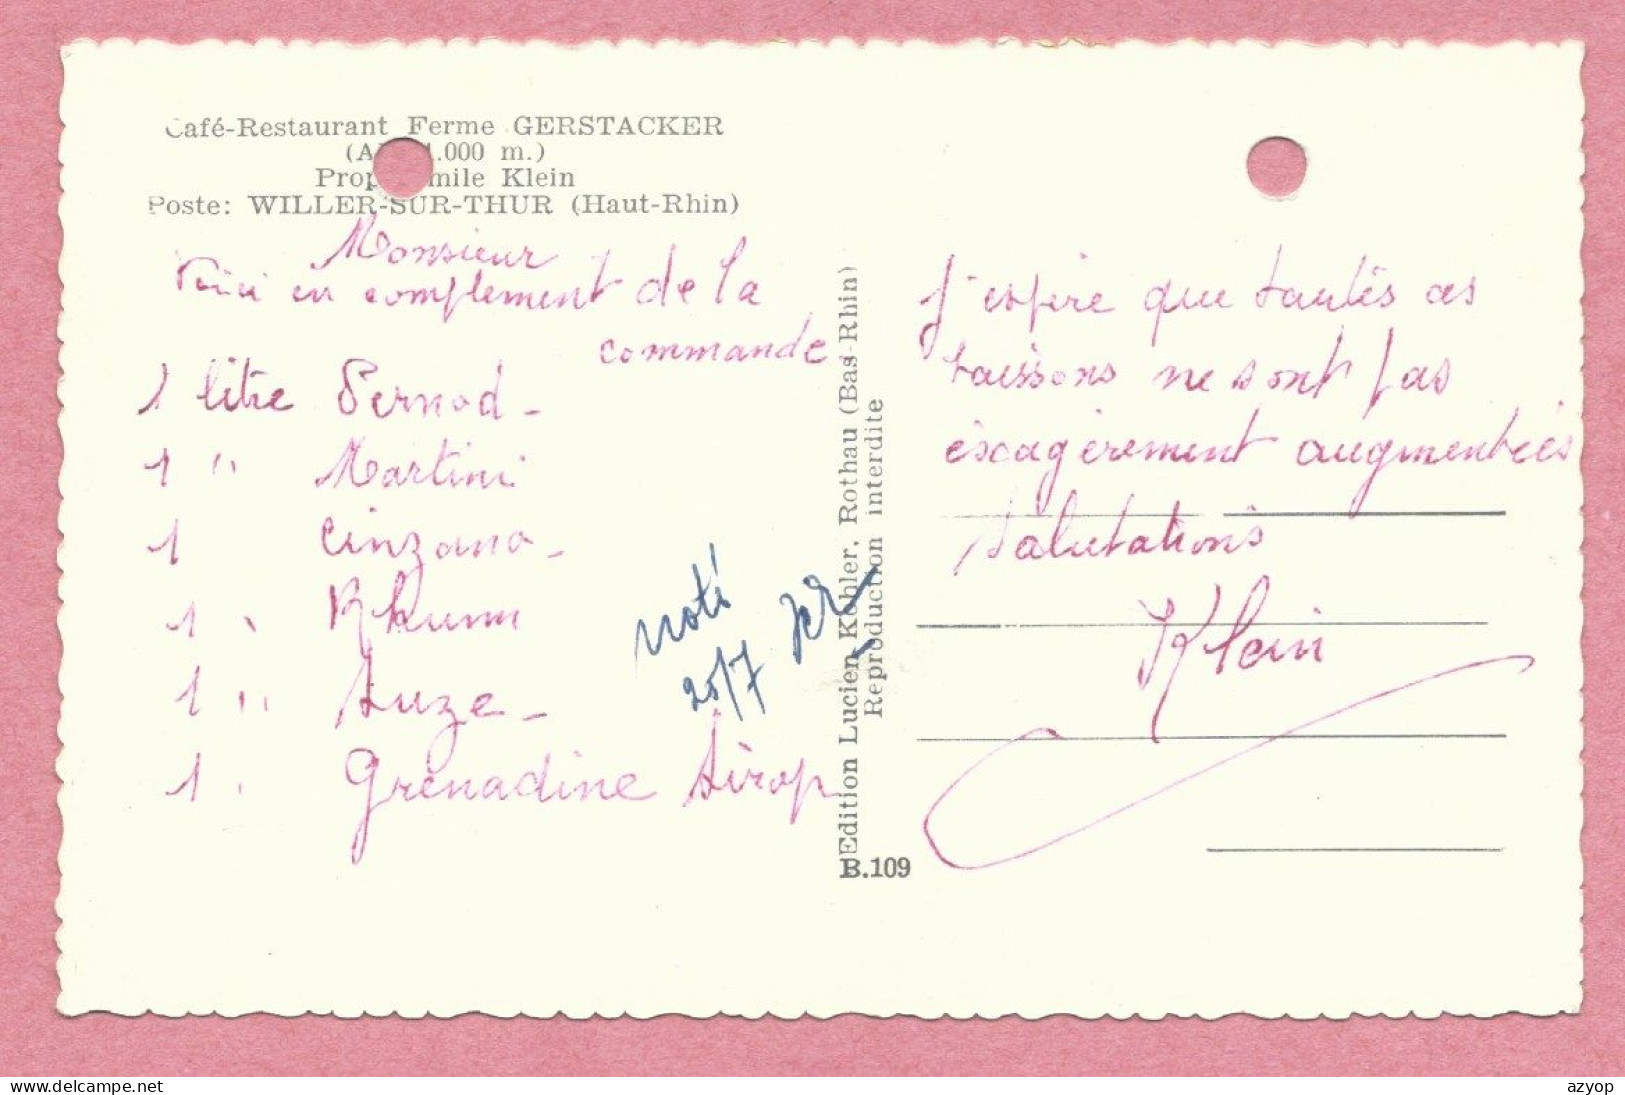 Café-Restaurant Ferme GERSTACKER
(A 1.000 m.)
Prop mile Klein
Poste: WILLER-SUR-THUR (Haut-Rhin)
Monsieur
Voici en complement de la
commande
1 litre Pernod -
1 " Martini
1 Cinzano -
1 " Rhum
1 " Suze -
1 " Grenadine Sirop
noté
20/7
Edition Lucien Kohler, Rothau (Bas-Rhin)
Reproduction interdite
B.109
J'espère que toutes ces
boissons ne sont pas
éxagérement augmentées
Salutations
Klein
www.delcampe.net
azyop